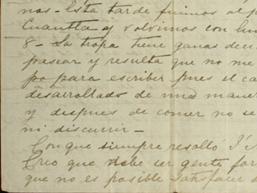 nas - Esta tarde fuimos al p
Cuautla - y volvimos con
8 - La tropa tiene ganas de
pasear y resulta que no me
po para escribir pues el ca
desarrollado de una mane
y despues de comer no se
ni discurrir -
Con que siempre resolto
Creo que debe ser gente for
que no es posible satisfacer